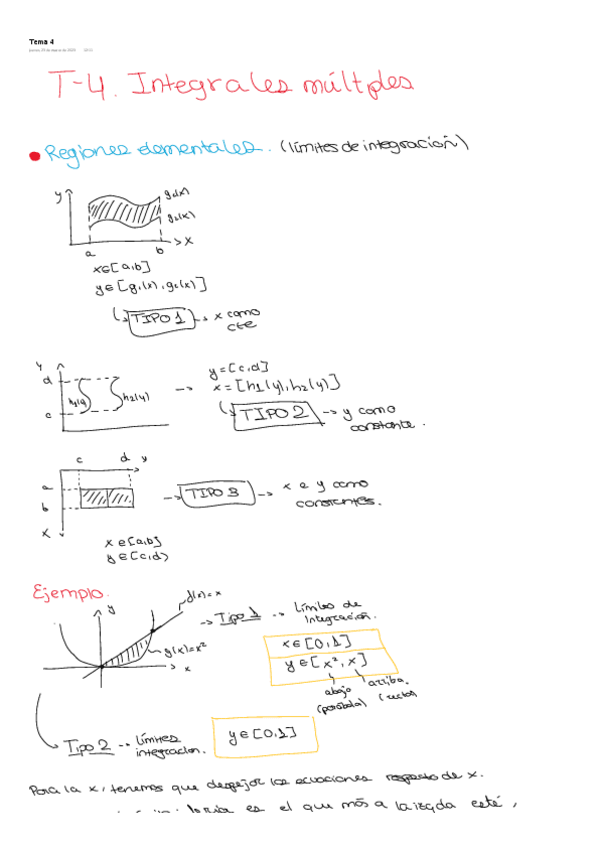 Tema 4
T-4. Integrales múltples
Regiones elementales. (límites de integración)
y
g2(x)
g1(x)
x
a
b
x∈[a,b]
y∈[g1(x), g2(x)]
TIPO 1 → x como
cte
y
d
c
h1(y)
h2(y)
y=[c,d]
x=[h1(y), h2(y)]
TIPO 2 → y como
constante.
c
d
y
a
b
x
TIPO 3 → x e y como
constantes.
x∈[a,b]
y∈[c,d]
Ejemplo.
y
f(x)=x
g(x)=x²
x
→ Tipo 1 → Límites de
Integración.
x∈[0,1]
y∈[x²,x]
abajo
(parábola)
arriba.
(recta)
Tipo 2 → Límites
integración.
y∈[0,1]
Para la x, tenemos que despejar las ecuaciones respecto de x.
es el que más a la izqda esté,